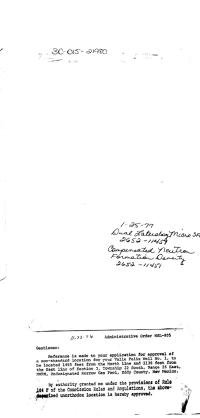 30-015-21980
1-25-77
Dual Laterolog Micro SFL
2652 - 11454
Compensated Neutron
Formation Density
2652 - 11451
Administrative Order NSL-835
Gentlemen:
Reference is made to your application for approval of
a non-standard location for your Valls Well No. 1, to
be located 1495 feet from the North line and 2130 feet from
the East line of Section 3, Township 23 South, Range 26 East,
NMPM, Undesignated Morrow Gas Pool, Eddy County, New Mexico.
By authority granted me under the provisions of Rule
104 F of the Commission Rules and Regulations, the above-
described unorthodox location is hereby approved.